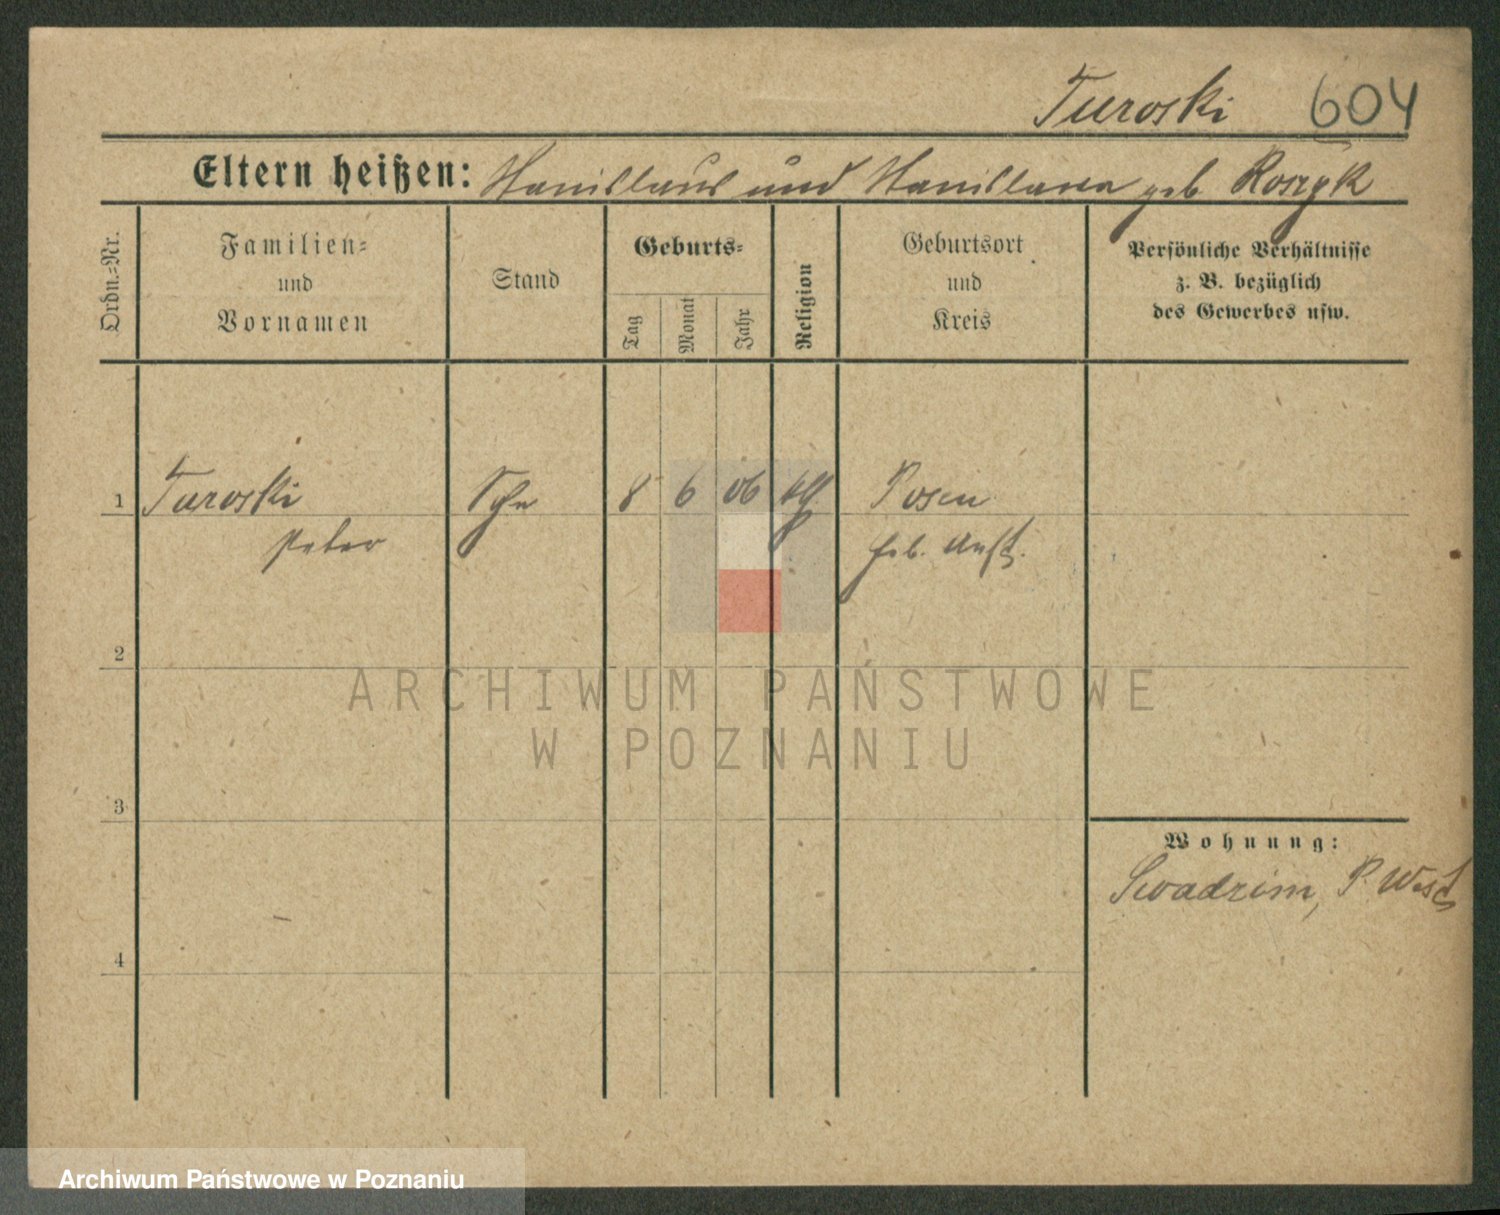 Turoski 604
Eltern heißen: Stanislaus und Stanislawa geb Roszyk
Ordn.=Nr.
Familien=
und
Vornamen
Stand
Geburts=
Tag
Monat
Jahr
Religion
Geburtsort
und
Kreis
Persönliche Verhältnisse
z. B. bezüglich
des Gewerbes usw.
1 Turoski 8 6 06 kth Posen
Peter Geb. Anst.
2
3
4
Wohnung:
Swadzim, P. West
ARCHIWUM PAŃSTWOWE
W POZNANIU
Archiwum Państwowe w Poznaniu